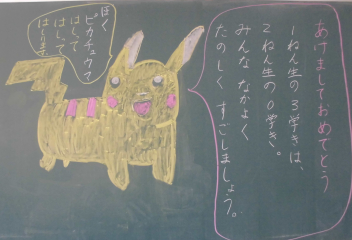 あけましておめでとう
1ねん生の3学きは、
2ねん生の0学き。
みんな なかよく
たのしく すごしましょう。
ぼく
ピカチュウマ
はしって
はしって
はします